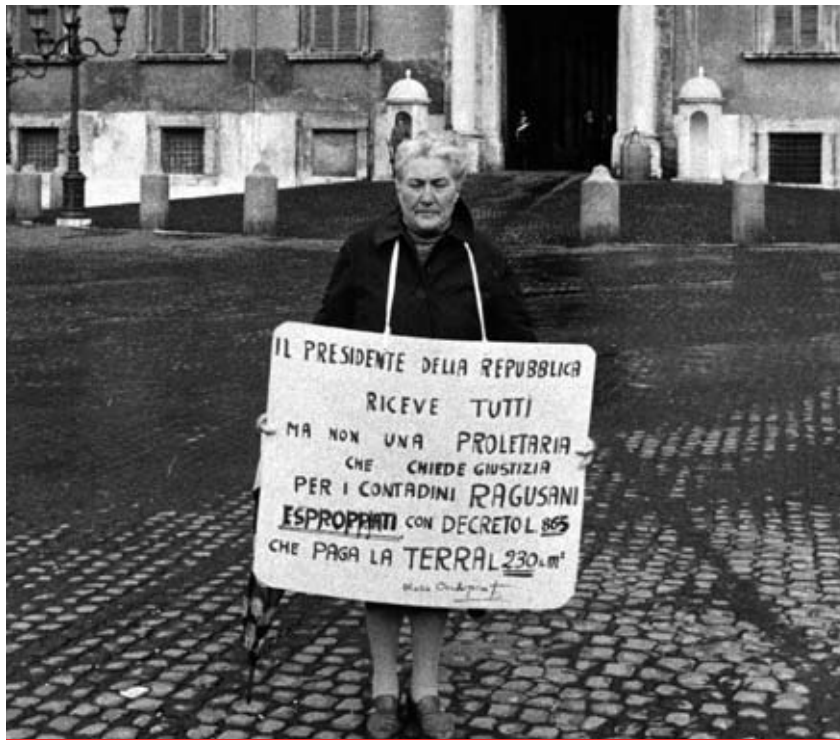 IL PRESIDENTE DELLA REPUBBLICA
RICEVE TUTTI
MA NON UNA PROLETARIA
CHE CHIEDE GIUSTIZIA
PER I CONTADINI RAGUSANI
ESPROPPIATI CON DECRETO L. 865
CHE PAGA LA TERRA L 230 m²